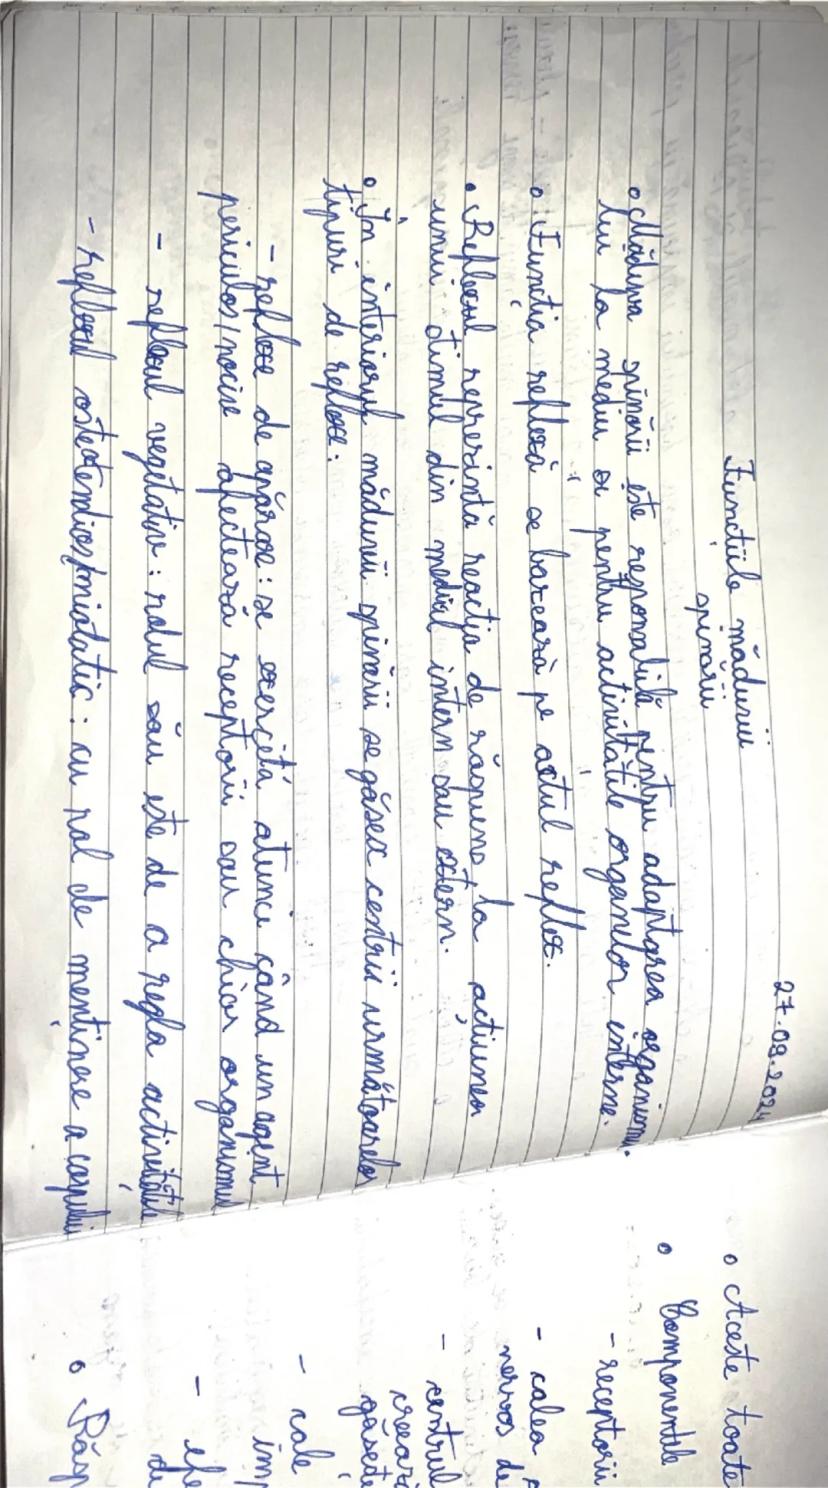 27.08.2024
Funcțiile măduvii
spinării
Măduva spinării este responsabilă pentru adaptarea organismu-
lui la mediu și pentru activitățile organelor interne.
Funcția reflexă se bazează pe actul reflex.
Reflexul reprezintă reacția de răspuns la acțiunea
unui stimul din mediul intern sau extern.
În interiorul măduvii spinării se găsesc centrii următoarelor
tipuri de reflexe:
- reflexe de apărare: se exercită atunci când un agent
periculos/nociv afectează receptorii sau chiar organismul
- reflexul vegetativ: rolul său este de a regla activitățile
- reflexul osteotendios/miotatic: cu rol de menținere a corpului
Aceste toate
Componentele
- receptorii
- calea
nervos de
- centrul
găsește
- cale
imp
- efe
de
Răsp